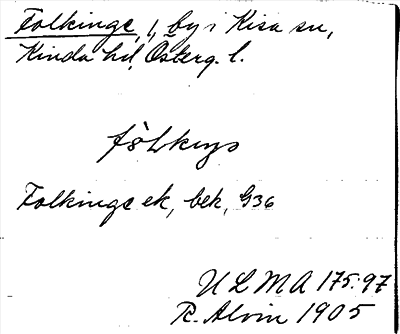 Folkinge, l, by i Kisa sn,
Kinda hd, Österg. l.
Folkinge ek, bek, G36
ULMA 175:97
R. Alvin 1905